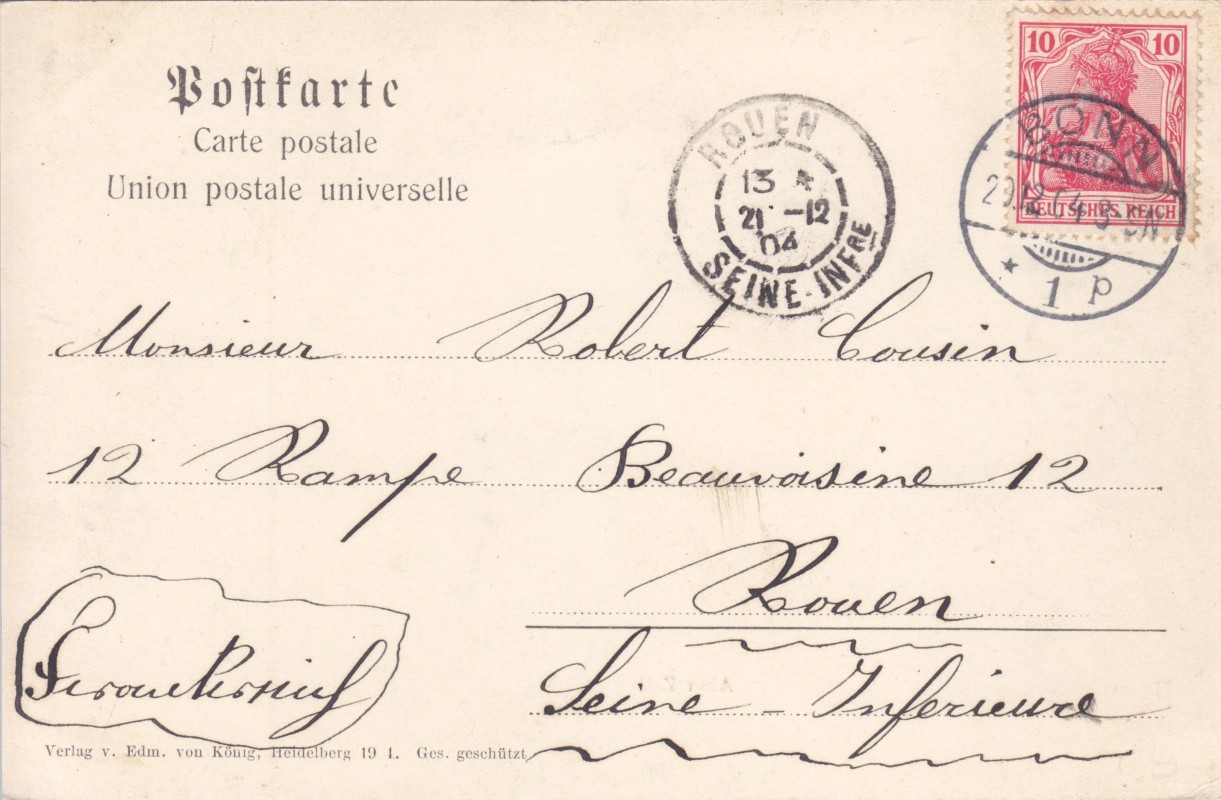 Postkarte
Carte postale
Union postale universelle
ROUEN
13 *
21 -12
04
SEINE-INFRE
10 10
DEUTSCHES REICH
BONN
12 04
* 1 p
Monsieur Robert Cousin
12 Rampe Beauvoisine 12
Rouen
Seine - Inferieure
Frankreich
Verlag v. Edm. von König, Heidelberg 19 4. Ges. geschützt